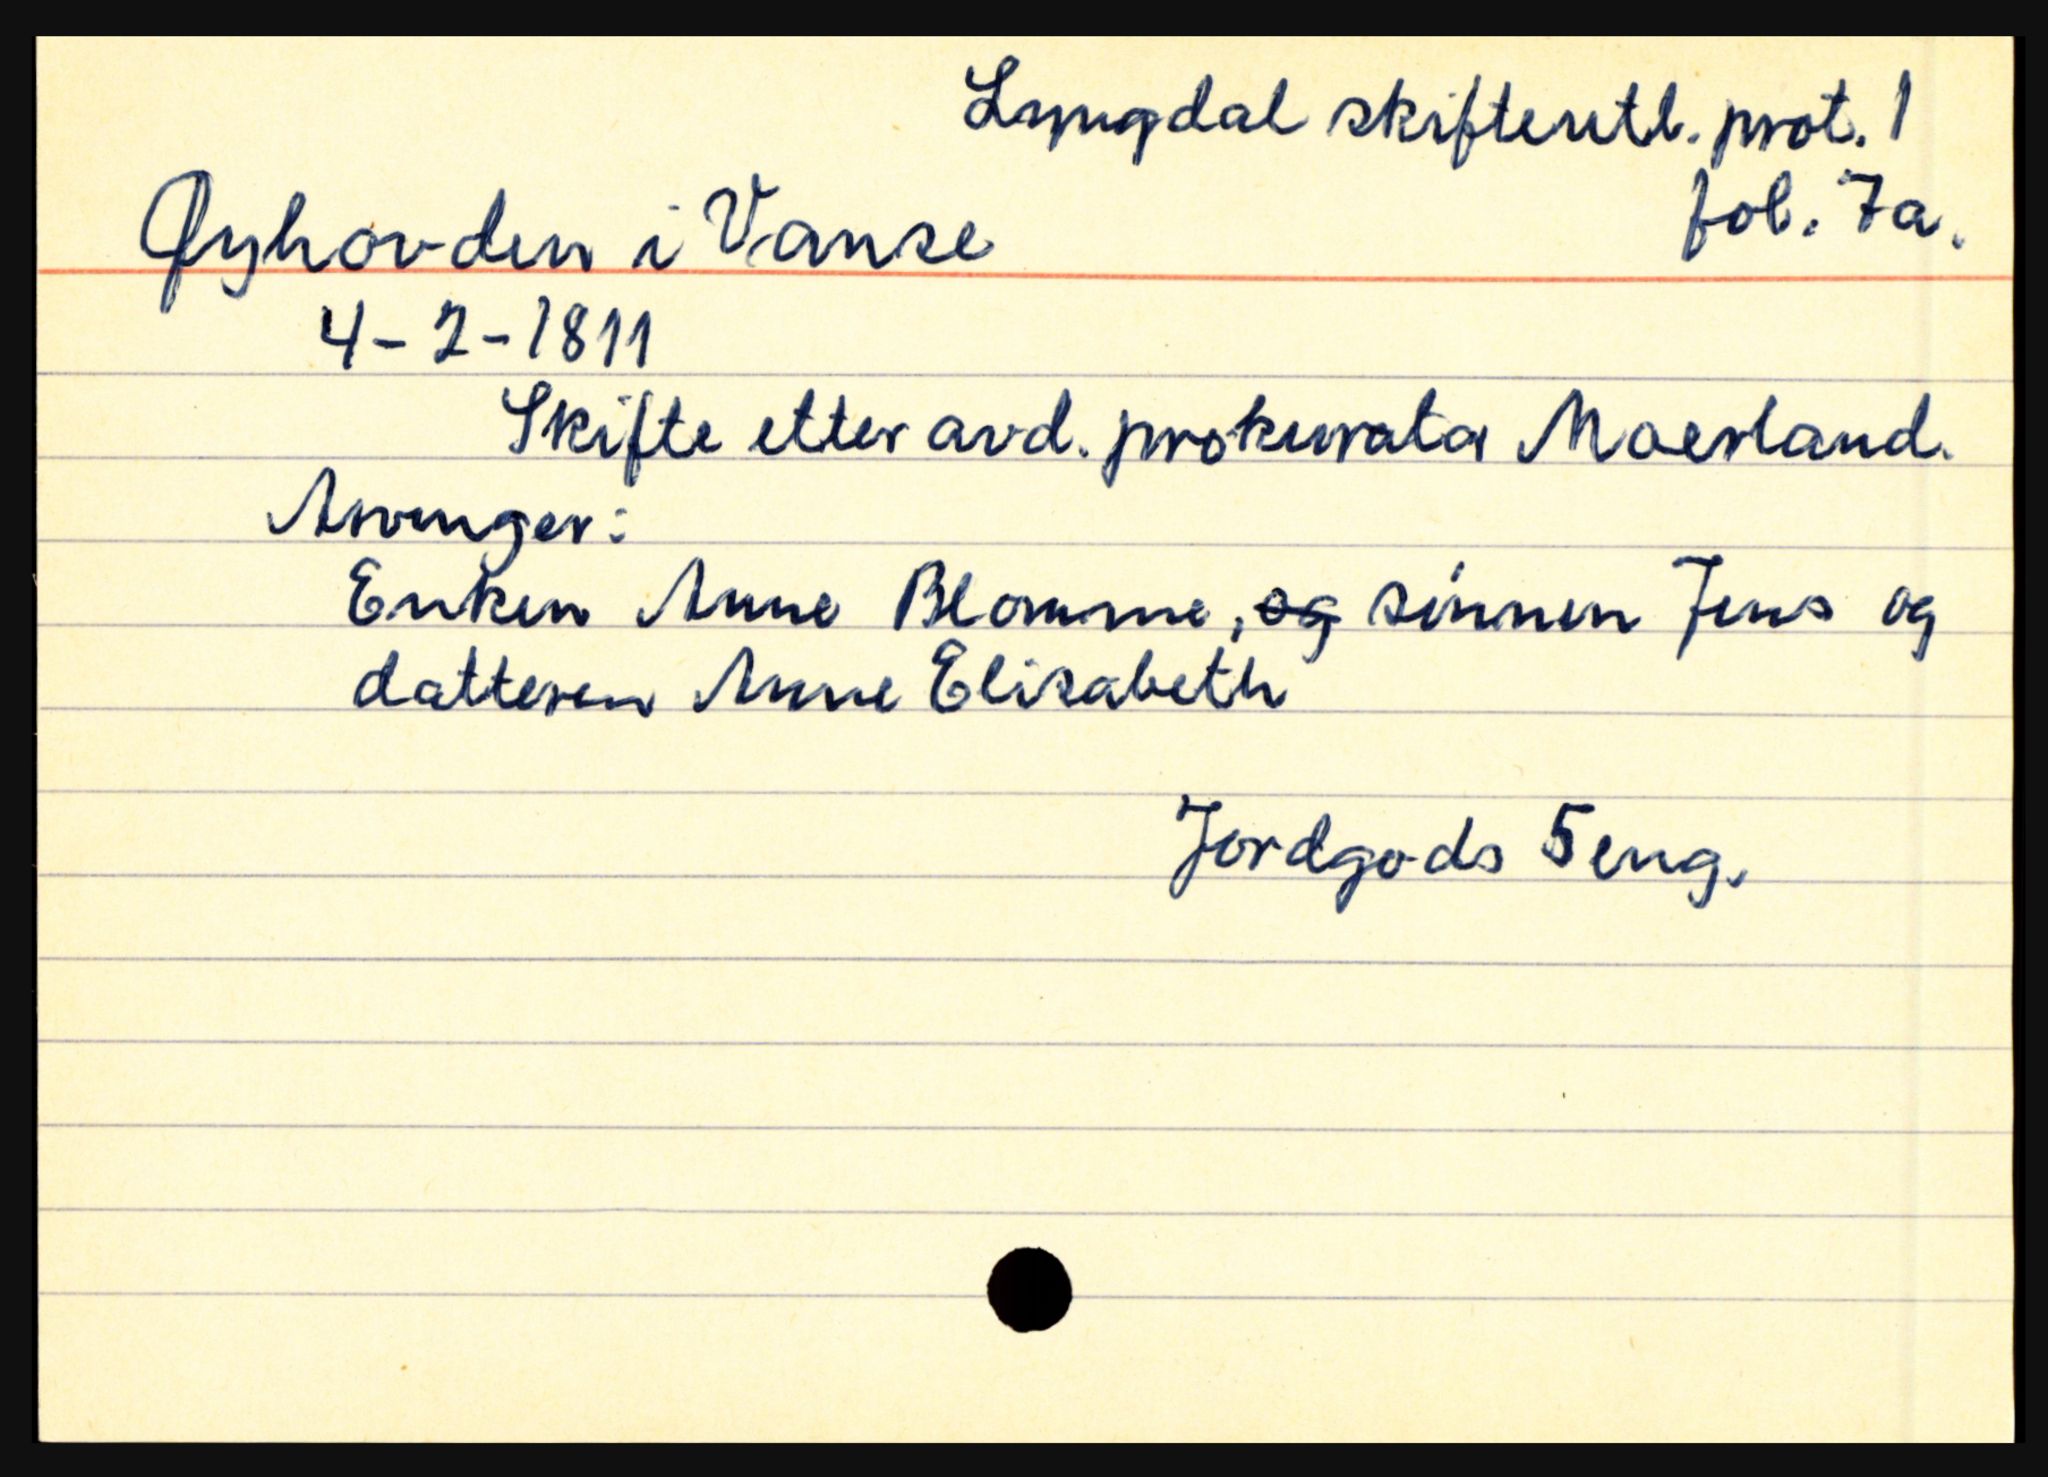 Lyngdal skifteutl. prot. 1
fol. 7a.
Øyhovden i Vanse
4-2-1811
Skifte etter avd. prokurator Moerland.
Arvinger:
Enken Anne Blomme, og sønnen Jens og
datteren Anne Elisabeth
Jordgods 5 eng.